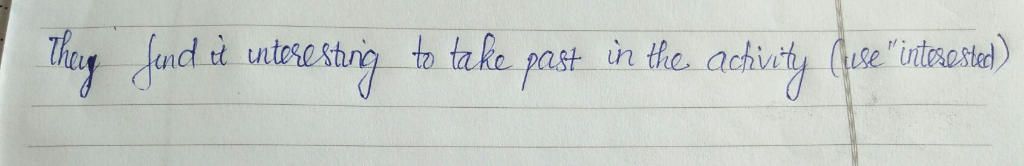 They find it interesting to take part in the activity (use "interested)